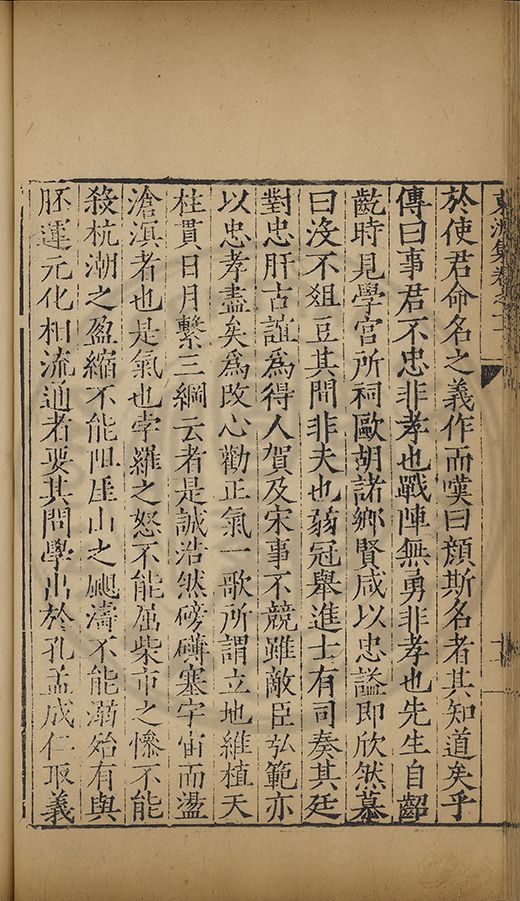 於使君命名之義作而嘆曰顏斯名者其知道矣乎
傳曰事君不忠非孝也戰陣無勇非孝也先生自齠
齔時見學宮所祠歐胡諸鄉賢咸以忠謚即欣然慕
曰沒不俎豆其間非夫也弱冠舉進士有司奏其廷
對忠肝古誼為得人賀及宋事不競雖敵臣弘範亦
以忠孝盡矣為改心勸正氣一歌所謂立地維植天
柱貫日月繫三綱云者是誠浩然磅礴塞宇宙而盪
滄溟者也是氣也孛羅之怒不能屈柴市之慘不能
殺杭潮之盈縮不能阻厓山之颶濤不能溺殆有與
胚運元化相流通者要其問學出於孔孟成仁取義
集卷之